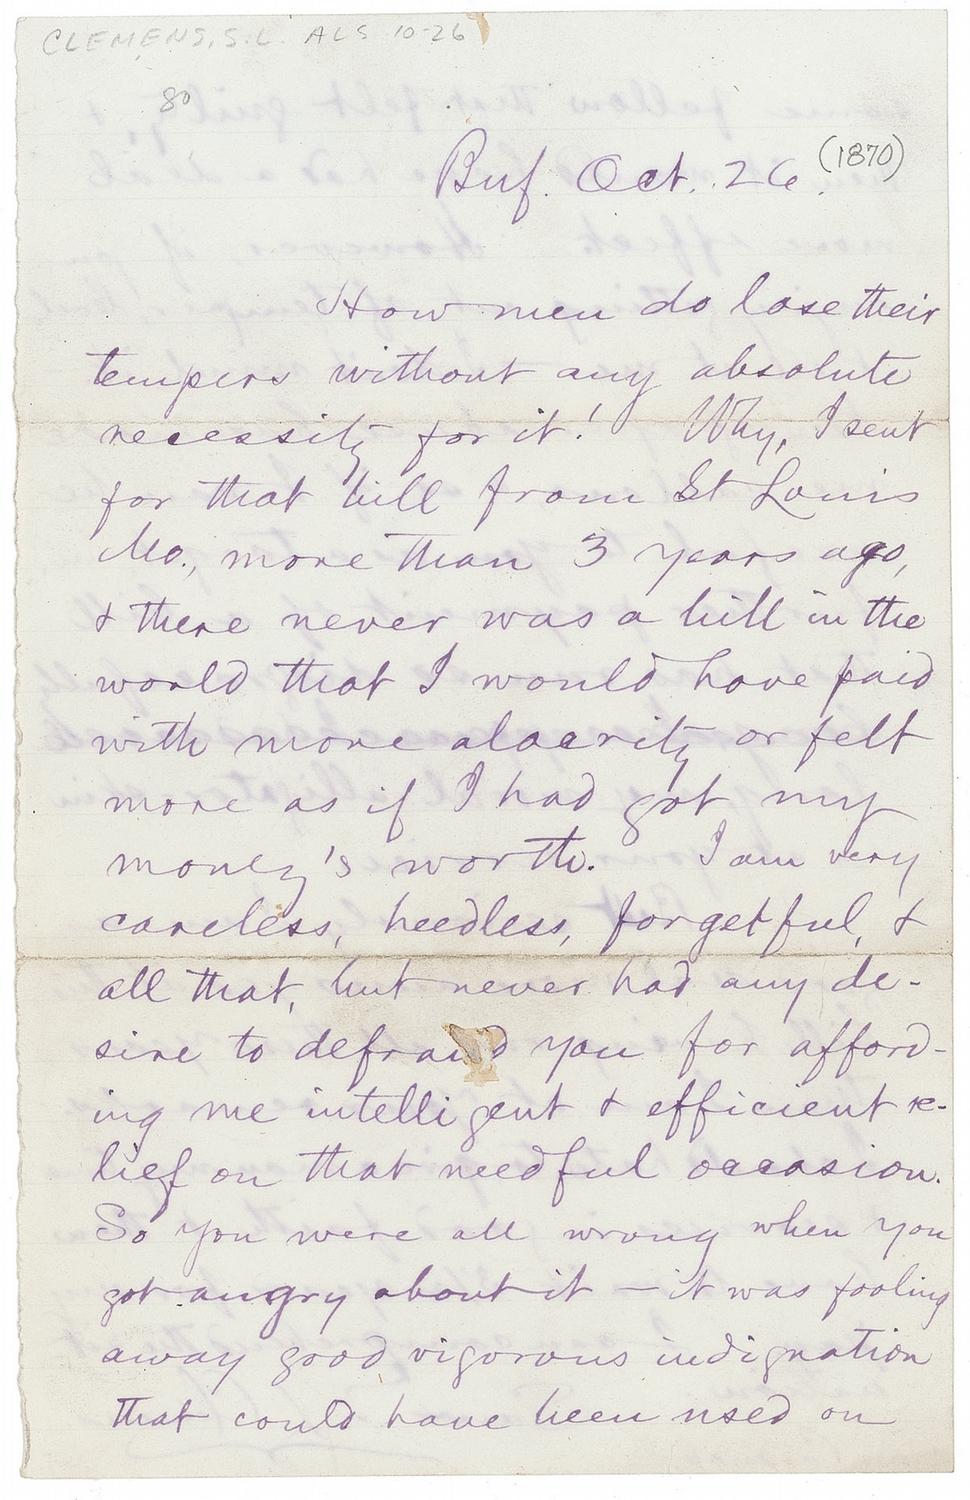 CLEMENS, S.L. ALS 10-26
80
Buf. Oct. 26. (1870)
How men do lose their
tempers without any absolute
necessity for it! Why, I sent
for that bill from St Louis
Mo., more than 3 years ago,
& there never was a bill in the
world that I would have paid
with more alacrity or felt
more as if I had got my
money's worth. I am very
careless, heedless, forgetful, &
all that, but never had any de-
sire to defraud you for afford-
ing me intelligent & efficient re-
lief on that needful occasion.
So you were all wrong when you
got angry about it — it was fooling
away good vigorous indignation
that could have been used on